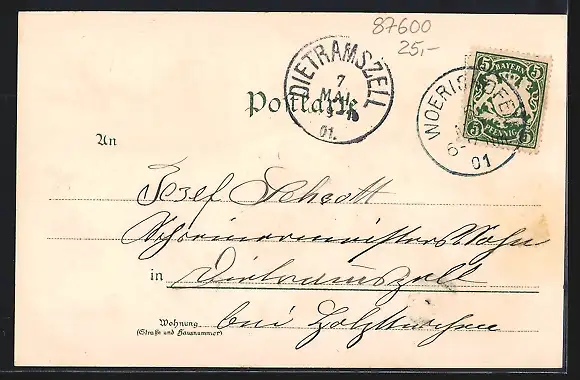 87600
25,-
DIETRAMSZELL
7
MAI
01.
BAYERN
5 5
5 5
PFENNIG
WOERISHOFEN
01
Postkarte
An
Josef Schrott
Schreinermeisters Sohn
in Dietramszell
Wohnung
(Straße und Hausnummer)
bei Holzkirchen